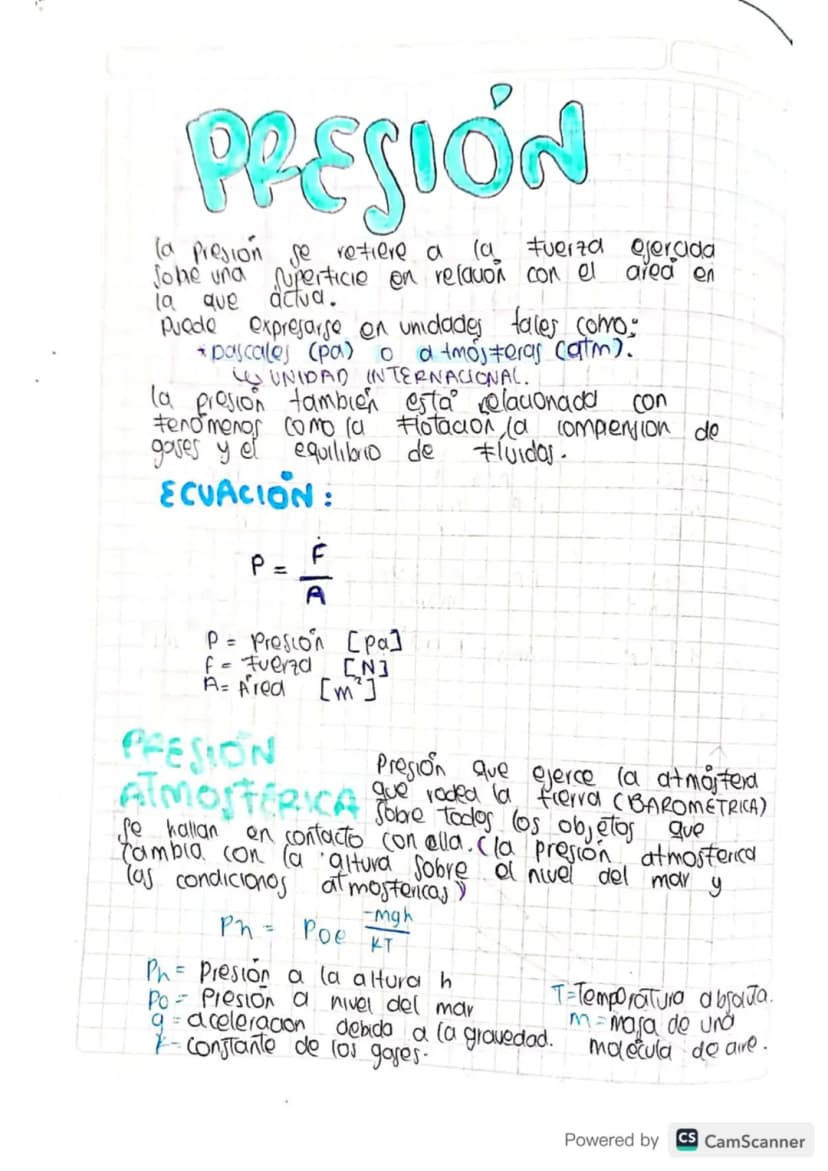 PRESIÓN
la presión se refiere a la fuerza ejercida
sobre una superficie en relación con el area en
la que actua.
puede expresarse en unidades tales como:
* pascales (pa) o atmósferas (atm).
↳ UNIDAD INTERNACIONAL.
la presión también está relacionada con
fenómenos como la flotación, la compension de
gases y el equilibrio de fluidos.
ECUACIÓN:
P = F
A
P = Presión [pa]
f = fuerza [N]
A = Área [m²]
PRESIÓN
ATMOSFÉRICA
Presión que ejerce la atmósfera
que rodea la tierra (BAROMETRICA)
sobre todos los objetos que
se hallan en contacto con ella. (la presión atmosferica
cambia con la altura sobre el nivel del mar y
las condiciones atmosfericas)
Ph = Poe -mgh
KT
Ph = Presión a la altura h
Po = Presión a nivel del mar
g = aceleracion debida a la gravedad.
k = constante de los gases.
T = Temperatura absoluta.
m = masa de una
molécula de aire.
Powered by CS CamScanner